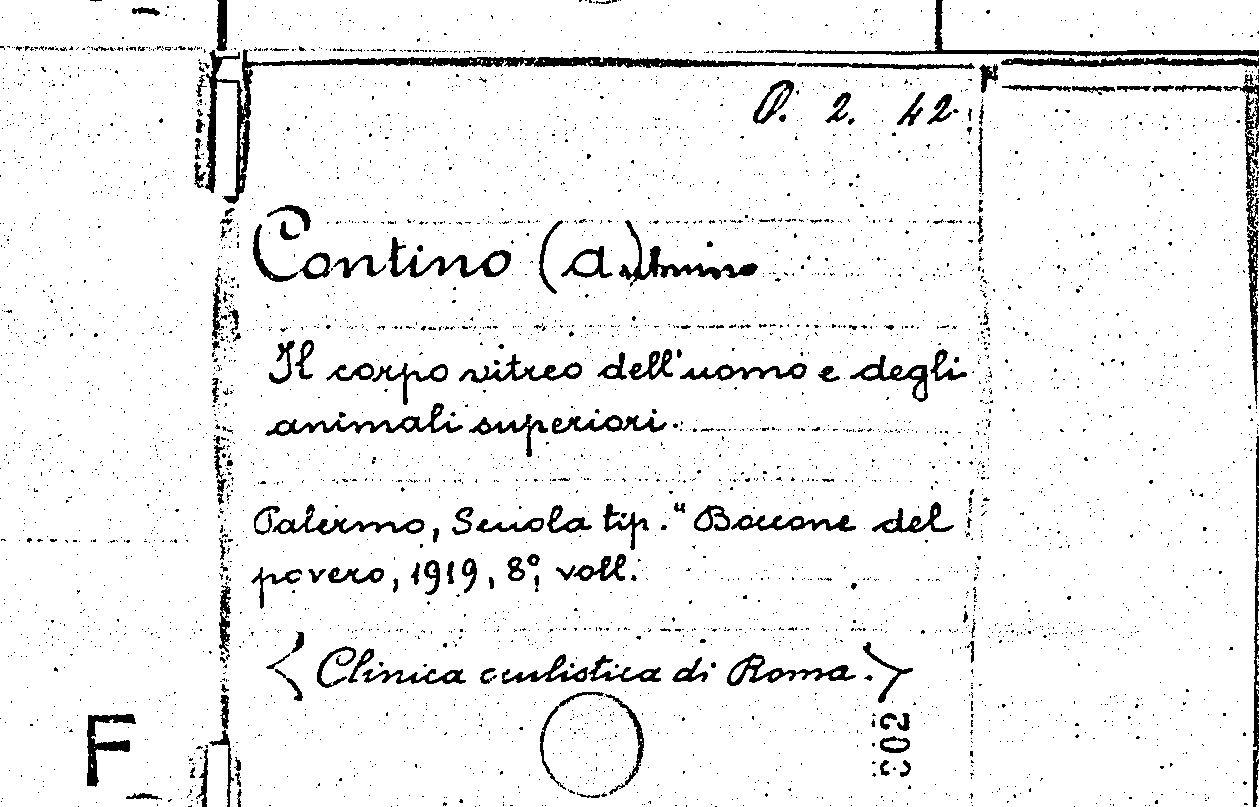 P. 2. 42
Contino (A)
Il corpo vitreo dell'uomo e degli
animali superiori.
Palermo, Scuola tip. "Boccone del
povero, 1919, 8°, voll.
<Clinica oculistica di Roma.>
302
F